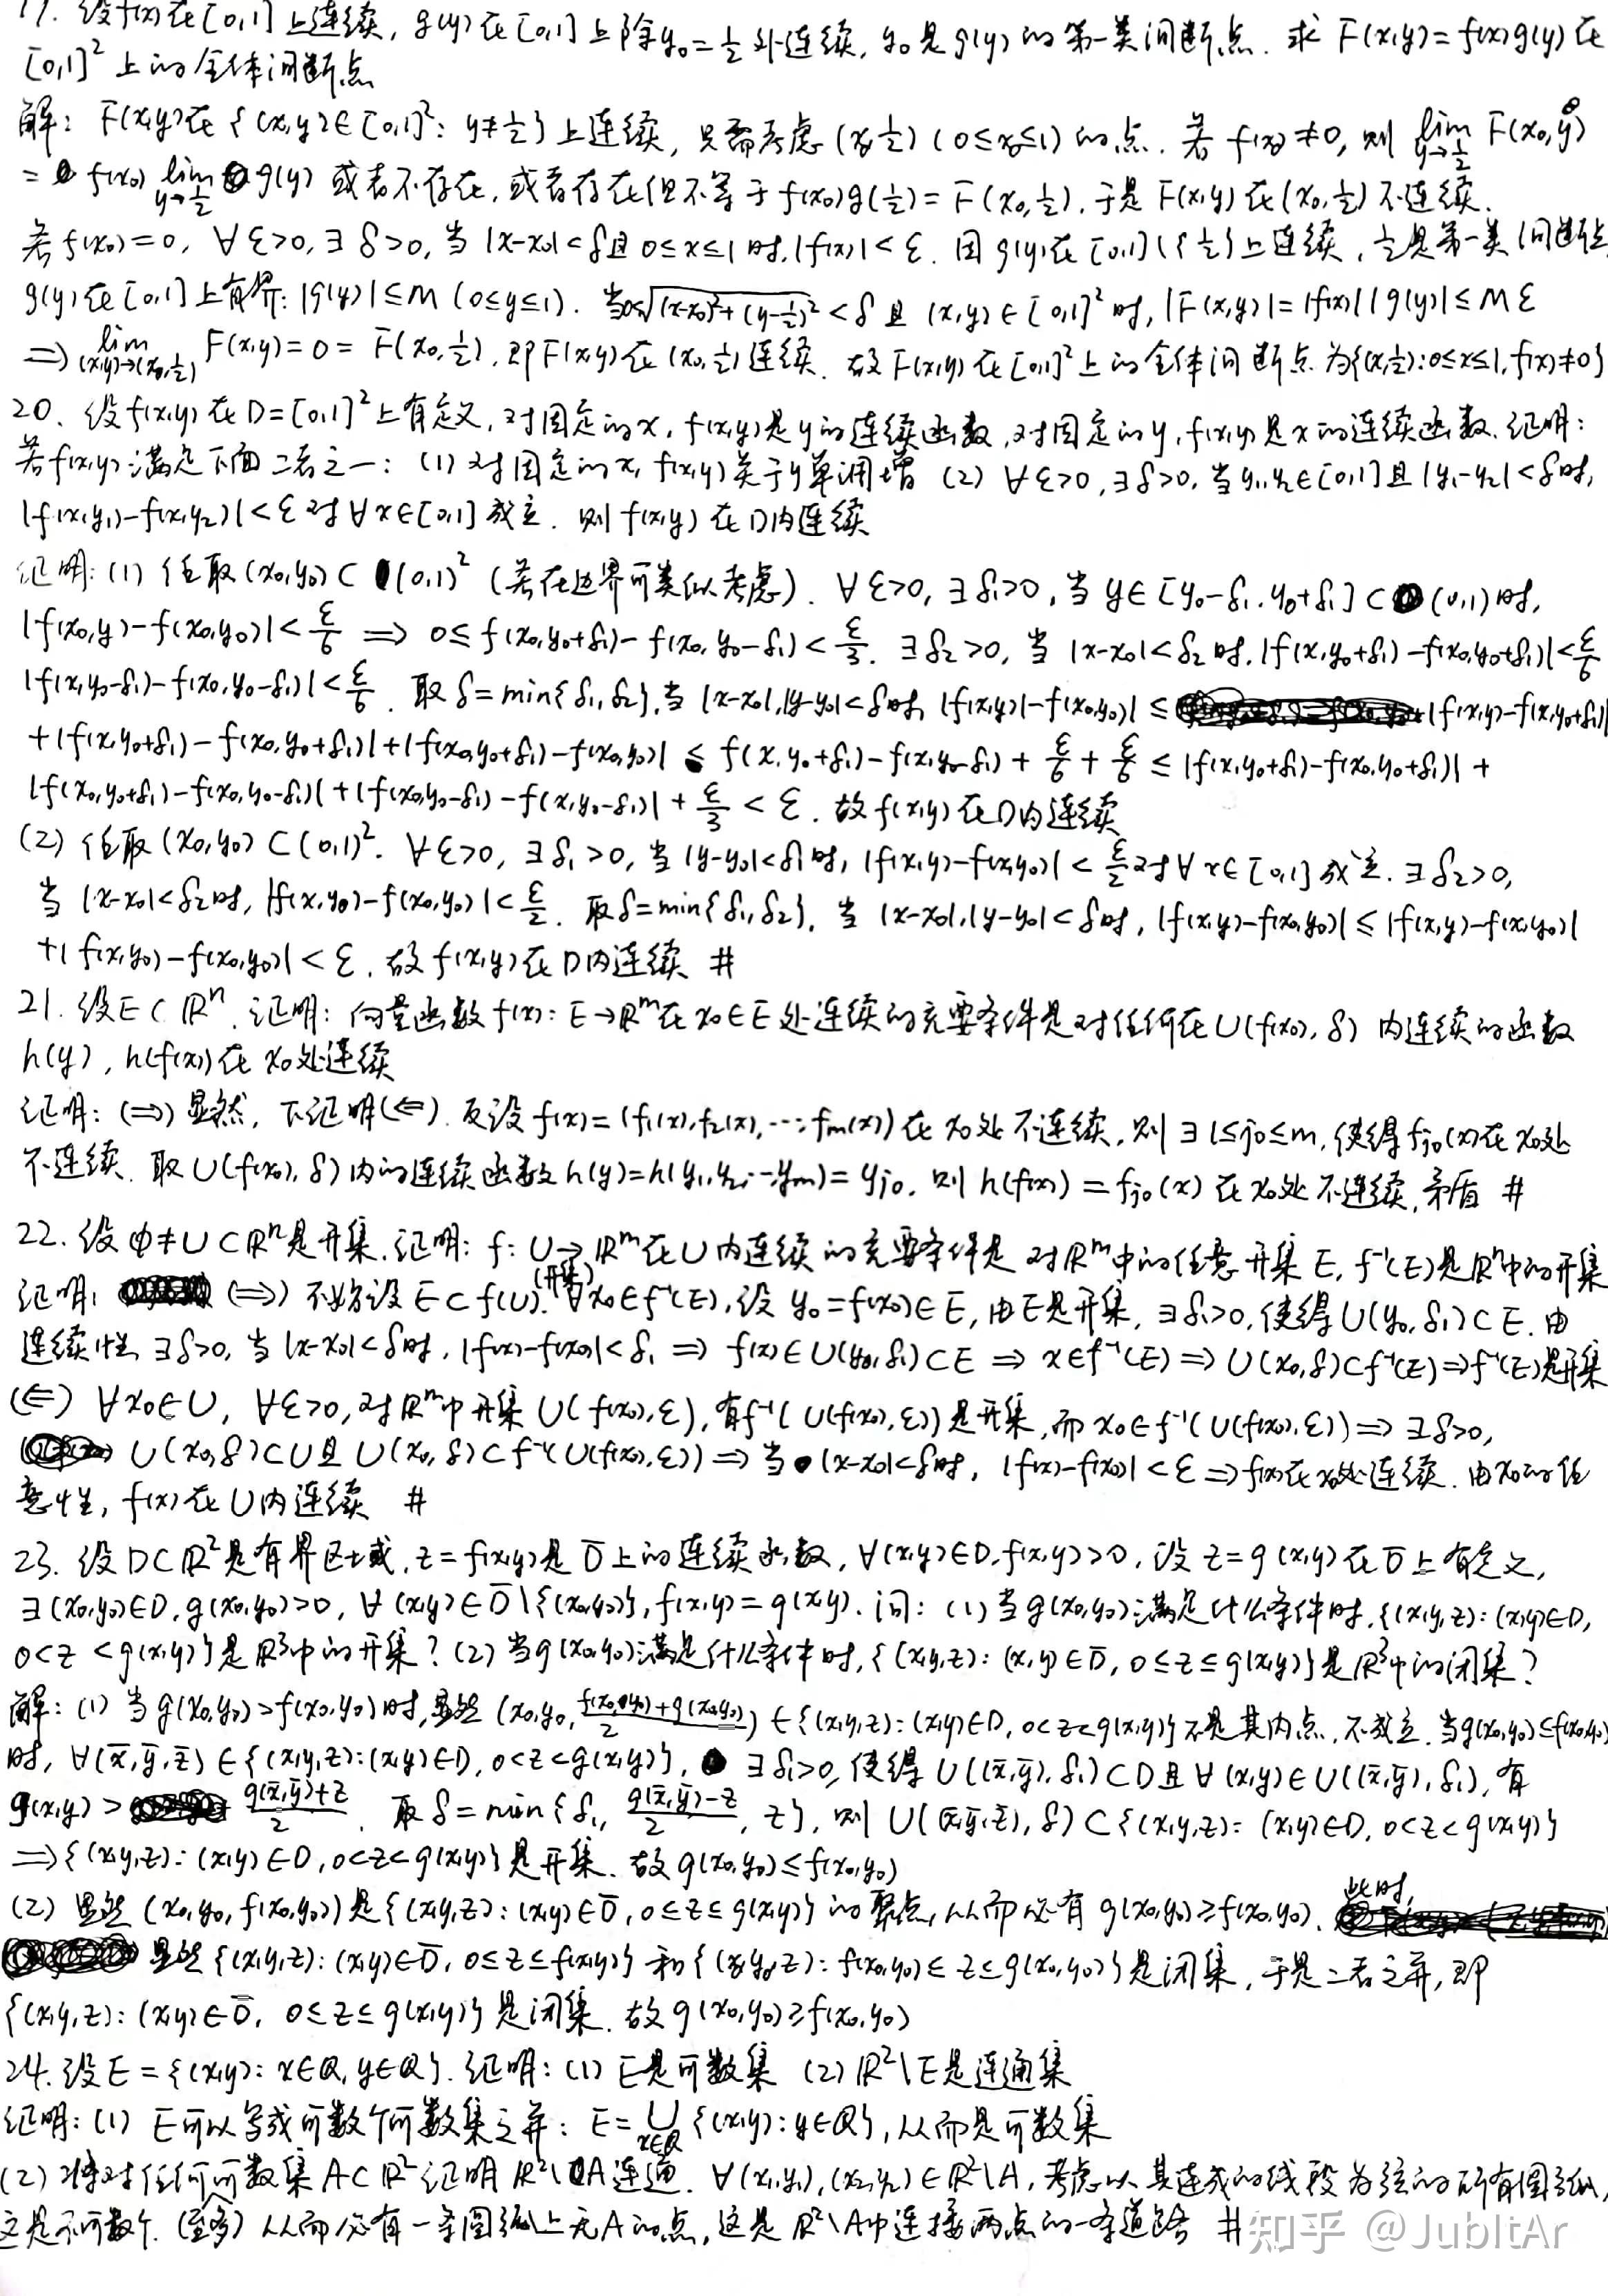 17. 设f(x)在[0,1]上连续, g(y)在[0,1]上除y₀=½外连续, y₀是g(y)的第一类间断点. 求F(x,y)=f(x)g(y)在
[0,1]²上的全体间断点
解: F(x,y)在{(x,y)∈[0,1]²: y≠½}上连续, 只需考虑(x₀,½)(0≤x₀≤1)的点. 若f(x₀)≠0, 则 lim_{y→½} F(x₀,y)
= f(x₀) lim_{y→½} g(y) 或者不存在, 或者存在但不等于f(x₀)g(½)=F(x₀,½), 于是F(x,y)在(x₀,½)不连续.
若f(x₀)=0, ∀ε>0, ∃δ>0, 当|x-x₀|<δ且0≤x≤1时, |f(x)|<ε. 因g(y)在[0,1]\{½}上连续, ½是第一类间断点,
g(y)在[0,1]上有界: |g(y)|≤M (0≤y≤1). 当0≤√((x-x₀)²+(y-½)²)<δ且(x,y)∈[0,1]²时, |F(x,y)|=|f(x)||g(y)|≤Mε
⇒ lim_{(x,y)→(x₀,½)} F(x,y)=0=F(x₀,½), 即F(x,y)在(x₀,½)连续. 故F(x,y)在[0,1]²上的全体间断点为{(x,½):0≤x≤1, f(x)≠0}
20. 设f(x,y)在D=[0,1]²上有定义, 对固定的x, f(x,y)是y的连续函数, 对固定的y, f(x,y)是x的连续函数. 证明:
若f(x,y)满足下面二者之一: (1) 对固定的x, f(x,y)关于y单调增 (2) ∀ε>0, ∃δ>0, 当y₁,y₂∈[0,1]且|y₁-y₂|<δ时,
|f(x,y₁)-f(x,y₂)|<ε对∀x∈[0,1]成立. 则f(x,y)在D内连续
证明: (1) 任取(x₀,y₀)⊂(0,1)² (若在边界可类似考虑). ∀ε>0, ∃δ₁>0, 当y∈[y₀-δ₁,y₀+δ₁]⊂(0,1)时,
|f(x₀,y)-f(x₀,y₀)|<ε/6 ⇒ 0≤f(x₀,y₀+δ₁)-f(x₀,y₀-δ₁)<ε/3. ∃δ₂>0, 当|x-x₀|<δ₂时, |f(x,y₀+δ₁)-f(x₀,y₀+δ₁)|<ε/6
|f(x,y₀-δ₁)-f(x₀,y₀-δ₁)|<ε/6. 取δ=min{δ₁,δ₂}, 当|x-x₀|,|y-y₀|<δ时, |f(x,y)|-f(x₀,y₀)|≤|f(x,y)-f(x,y₀+δ₁)|
+|f(x,y₀+δ₁)-f(x₀,y₀+δ₁)|+|f(x₀,y₀+δ₁)-f(x₀,y₀)|≤f(x,y₀+δ₁)-f(x,y₀-δ₁)+ε/6+ε/6≤|f(x,y₀+δ₁)-f(x₀,y₀+δ₁)|+
|f(x₀,y₀+δ₁)-f(x₀,y₀-δ₁)|+|f(x₀,y₀-δ₁)-f(x,y₀-δ₁)|+ε/3<ε. 故f(x,y)在D内连续
(2) 任取(x₀,y₀)⊂(0,1)². ∀ε>0, ∃δ₁>0, 当|y-y₀|<δ₁时, |f(x,y)-f(x,y₀)|<ε/2对∀x∈[0,1]成立. ∃δ₂>0,
当|x-x₀|<δ₂时, |f(x,y₀)-f(x₀,y₀)|<ε/2. 取δ=min{δ₁,δ₂}, 当|x-x₀|,|y-y₀|<δ时, |f(x,y)-f(x₀,y₀)|≤|f(x,y)-f(x,y₀)|
+|f(x,y₀)-f(x₀,y₀)|<ε. 故f(x,y)在D内连续 #
21. 设E⊂ℝⁿ. 证明: 向量函数f(x): E→ℝᵐ在x₀∈E处连续的充要条件是对任何在U(f(x₀),δ)内连续的函数
h(y), h(f(x))在x₀处连续
证明: (⇒)显然, 下证明(⇐). 反设f(x)=(f₁(x),f₂(x),⋯,fₘ(x))在x₀处不连续, 则∃1≤j₀≤m, 使得f_{j₀}(x)在x₀处
不连续. 取U(f(x₀),δ)内的连续函数h(y)=h(y₁,y₂,⋯,yₘ)=y_{j₀}. 则h(f(x))=f_{j₀}(x)在x₀处不连续, 矛盾 #
22. 设φ≠U⊂ℝⁿ是开集. 证明: f: U→ℝᵐ在U内连续的充要条件是对ℝᵐ中的任意开集E, f⁻¹(E)是ℝⁿ中的开集
证明: (⇒) 不妨设E⊂f(U). (开集) ∀x₀∈f⁻¹(E), 设y₀=f(x₀)∈E, 由E是开集, ∃δ₁>0, 使得U(y₀,δ₁)⊂E. 由
连续性, ∃δ>0, 当|x-x₀|<δ时, |f(x)-f(x₀)|<δ₁ ⇒ f(x)∈U(y₀,δ₁)⊂E ⇒ x∈f⁻¹(E) ⇒ U(x₀,δ)⊂f⁻¹(E) ⇒ f⁻¹(E)是开集
(⇐) ∀x₀∈U, ∀ε>0, 对ℝᵐ中开集U(f(x₀),ε), 有f⁻¹(U(f(x₀),ε))是开集, 而x₀∈f⁻¹(U(f(x₀),ε)) ⇒ ∃δ>0,
U(x₀,δ)⊂U且U(x₀,δ)⊂f⁻¹(U(f(x₀),ε)) ⇒ 当|x-x₀|<δ时, |f(x)-f(x₀)|<ε ⇒ f(x)在x₀处连续. 由x₀的任
意性, f(x)在U内连续 #
23. 设D⊂ℝ²是有界区域, z=f(x,y)是D̄上的连续函数, ∀(x,y)∈D, f(x,y)>0, 设z=g(x,y)在D̄上有定义,
∃(x₀,y₀)∈D, g(x₀,y₀)>0, ∀(x,y)∈D̄\{(x₀,y₀)}, f(x,y)=g(x,y). 问: (1) 当g(x₀,y₀)满足什么条件时, {(x,y,z): (x,y)∈D,
0<z<g(x,y)}是ℝ³中的开集? (2) 当g(x₀,y₀)满足什么条件时, {(x,y,z): (x,y)∈D̄, 0≤z≤g(x,y)}是ℝ³中的闭集?
解: (1) 当g(x₀,y₀)>f(x₀,y₀)时, 显然(x₀,y₀,(f(x₀,y₀)+g(x₀,y₀))/2)∈{(x,y,z): (x,y)∈D, 0<z<g(x,y)}不是其内点, 不成立. 当g(x₀,y₀)≤f(x₀,y₀)
时, ∀(x̄,ȳ,z̄)∈{(x,y,z):(x,y)∈D, 0<z<g(x,y)}, ∃δ₁>0, 使得U((x̄,ȳ),δ₁)⊂D且∀(x,y)∈U((x̄,ȳ),δ₁), 有
g(x,y)>(g(x̄,ȳ)+z)/2. 取δ=min{δ₁,(g(x̄,ȳ)-z)/2, z}, 则U((x̄,ȳ,z̄),δ)⊂{(x,y,z): (x,y)∈D, 0<z<g(x,y)}
⇒{(x,y,z): (x,y)∈D, 0<z<g(x,y)}是开集. 故g(x₀,y₀)≤f(x₀,y₀)
(2) 显然(x₀,y₀,f(x₀,y₀))是{(x,y,z): (x,y)∈D̄, 0≤z≤g(x,y)}的聚点, 从而必有g(x₀,y₀)≥f(x₀,y₀). 此时,
显然{(x,y,z): (x,y)∈D̄, 0≤z≤f(x,y)}和{(x₀,y₀,z): f(x₀,y₀)≤z≤g(x₀,y₀)}是闭集, 于是二者之并, 即
{(x,y,z): (x,y)∈D̄, 0≤z≤g(x,y)}是闭集. 故g(x₀,y₀)≥f(x₀,y₀)
24. 设E={(x,y): x∈ℚ, y∈ℚ}. 证明: (1) E是可数集 (2) ℝ²\E是连通集
证明: (1) E可以写成可数个可数集之并: E=⋃_{x∈ℚ}{(x,y): y∈ℚ}, 从而是可数集
(2) 将对任何可数集A⊂ℝ²证明ℝ²\A连通. ∀(x₁,y₁),(x₂,y₂)∈ℝ²\A, 考虑以其连成的线段为弦的所有圆弧,
这是不可数个. (至多) 从而必有一条圆弧上无A的点, 这是ℝ²\A中连接两点的一条道路 #
知乎 @JubItAr